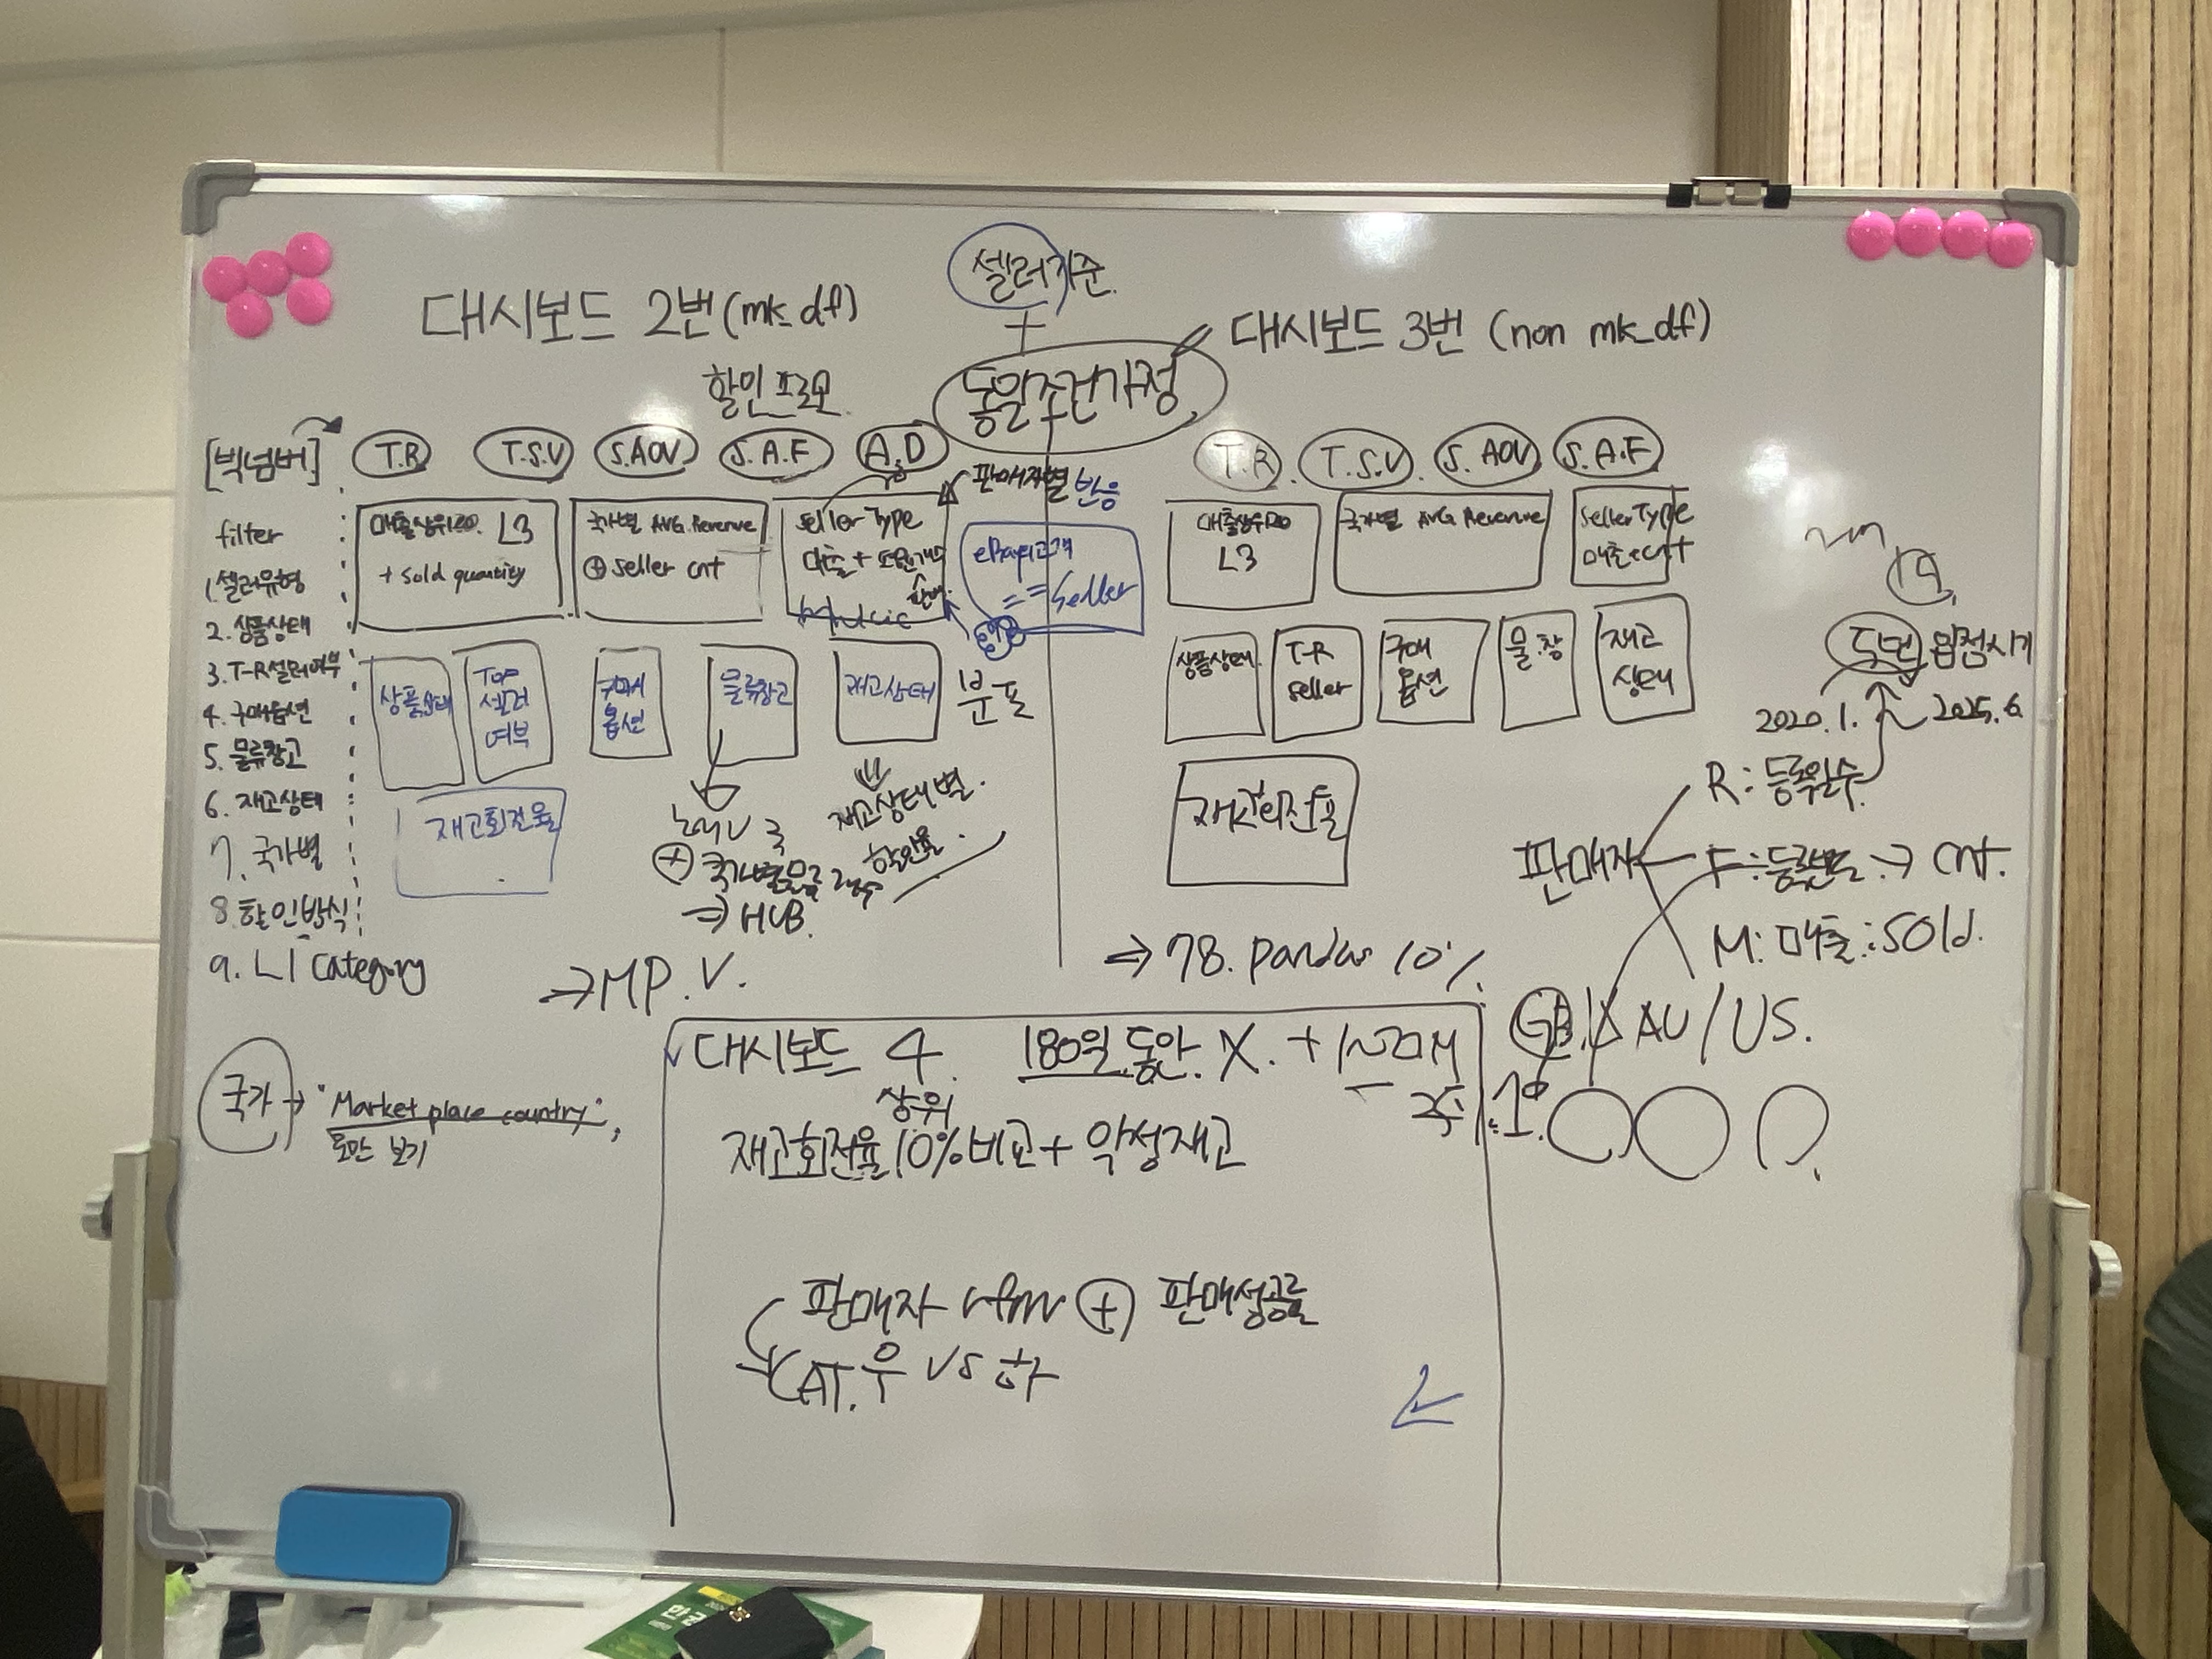 셀러기준
+
동일조건가정
대시보드 2번 (mk_df)
할인프로모
[빅넘버]
T.R T.S.V S.AOV S.A.F A.D
filter
1. 셀러유형
2. 상품상태
3. T-R셀러여부
4. 구매옵션
5. 물류창고
6. 재고상태
7. 국가별
8. 할인방식
9. L1 Category
매출상위20. L3
+ Sold quantity
국가별 AVG. Revenue
⊕ seller cnt
seller Type
매출 +
판매자별 반응
== Seller
상품상태
Top
셀러
여부
구매
옵션
물류창고
재고상태
분포
재고회전율
재고상태별
할인율.
⊕ 국가별물류
⇒ HUB.
⇒ MP.V.
국가 → "Market place country",
로만 보기
대시보드 3번 (non mk_df)
T.R. T.S.V. S.AOV S.A.F
매출상위20
L3
국가별 AVG Revenue
Seller Type
매출+cnt
상품상태
T-R
seller
구매
옵션
물.창
재고
상태
재고회전율
⇒ 78. Pandas 10%
입점시기
2020.1. ~ 2025.6
판매자
R: 등록일수
F: 등록빈도 → cnt.
M: 매출: Sold.
GB / AU / US.
대시보드 4. 180일 동안 X. + 1~20M
상위
재고회전율 10% 비교 + 악성재고
판매자 rfm ⊕ 판매성공률
CAT. 우 vs 하